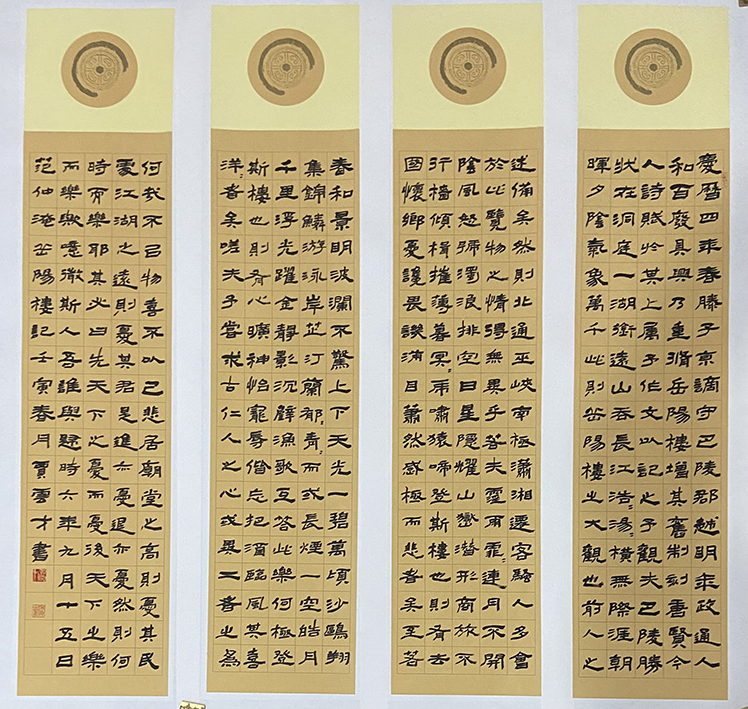 慶曆四年春滕子京謫守巴陵郡越明年政通人
和百廢具興乃重脩岳陽樓增其舊制刻唐賢今
人詩賦於其上屬予作文以記之予觀夫巴陵勝
狀在洞庭一湖銜遠山吞長江浩〻湯〻橫無際涯朝
暉夕陰氣象萬千此則岳陽樓之大觀也前人之
述備矣然則北通巫峽南極瀟湘遷客騷人多會
於此覽物之情得無異乎若夫霪雨霏〻連月不開
陰風怒號濁浪排空日星隱耀山嶽潛形商旅不
行檣傾楫摧薄暮冥〻虎嘯猿啼登斯樓也則有去
國懷鄉憂讒畏譏滿目蕭然感極而悲者矣至若
春和景明波瀾不驚上下天光一碧萬頃沙鷗翔
集錦鱗游泳岸芷汀蘭郁〻青〻而或長煙一空皓月
千里浮光躍金靜影沉璧漁歌互答此樂何極登
斯樓也則有心曠神怡寵辱偕忘把酒臨風其喜
洋〻者矣嗟夫予嘗求古仁人之心或異二者之為
何哉不以物喜不以己悲居朝堂之高則憂其民
處江湖之遠則憂其君是進亦憂退亦憂然則何
時而樂耶其必曰先天下之憂而憂後天下之樂
而樂歟噫微斯人吾誰與歸時六年九月十五日
范仲淹岳陽樓記壬寅春月賈雲才書